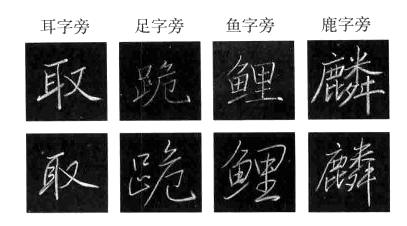 耳字旁 足字旁 鱼字旁 鹿字旁
取 跪 鲤 麟
取 跪 鲤 麟